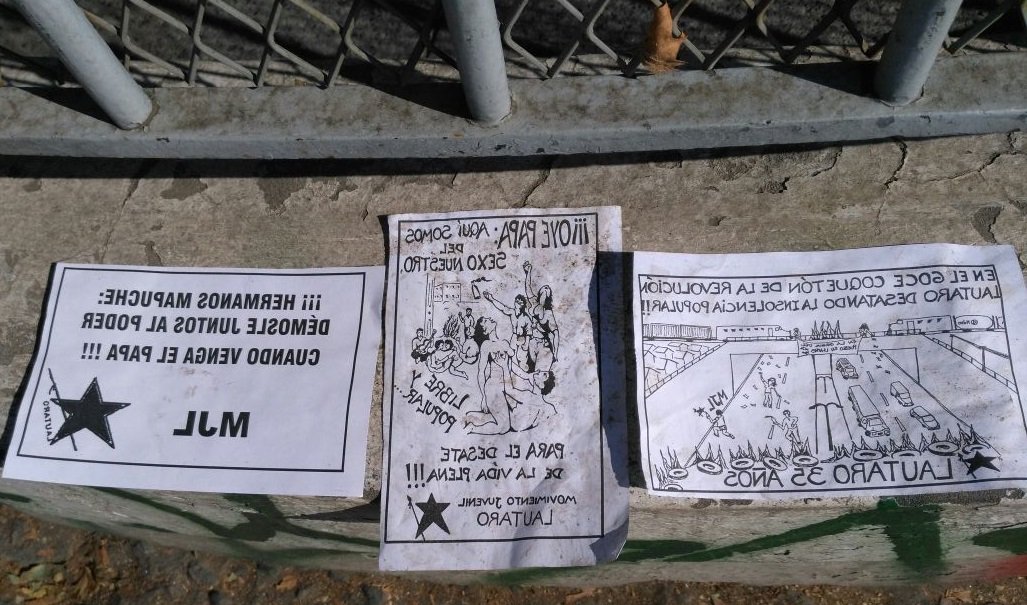 ¡¡¡ HERMANOS MAPUCHE:
DÉMOSLE JUNTOS AL PODER
CUANDO VENGA EL PAPA !!!
MJL
LAUTARO
¡¡¡OYE PAPA: AQUÍ SOMOS
DEL
SEXO NUESTRO,
LIBRE Y
POPULAR...
PARA EL DESATE
DE LA VIDA PLENA!!!
MOVIMIENTO JUVENIL
LAUTARO
EN EL GOCE COQUETÓN DE LA REVOLUCIÓN
LAUTARO DESATANDO LA INSOLENCIA POPULAR!!
MJL
LAUTARO 35 AÑOS